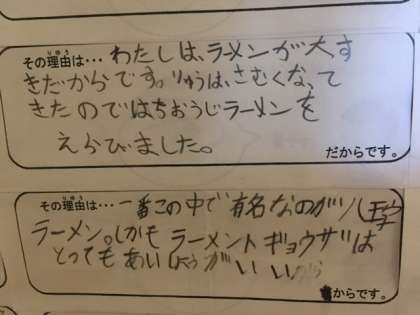 その理由は… わたしは、ラーメンが大す
きだからです。りゆうは、さむくなって
きたのではちおうじラーメンを
えらびました。
だからです。
その理由は… 一番この中で有名なのが八王子
ラーメン。しかもラーメントギョウザは
とってもあいしょうがいいから
からです。